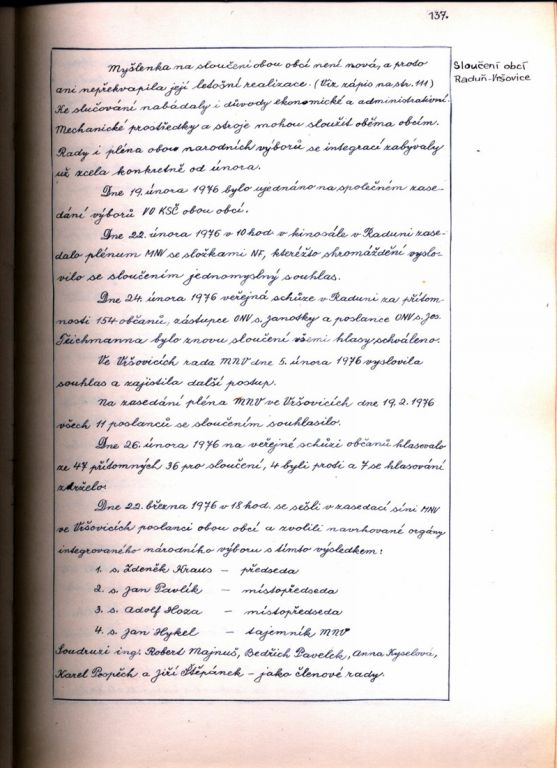 137.
Sloučení obcí
Raduň-Vršovice
Myšlenka na sloučení obou obcí není nová, a proto
ani nepřekvapila její letošní realizace. (Viz zápis na str. 111)
Ke slučování nabádaly i důvody ekonomické a administrativní.
Mechanické prostředky a stroje mohou sloužit oběma obcím.
Rady i pléna obou národních výborů se integrací zabývaly
už zcela konkretně od února.
Dne 19. února 1976 bylo ujednáno na společném zase-
dání výborů VO KSČ obou obcí.
Dne 22. února 1976 v 10 hod. v kinosále v Raduni zase-
dalo plénum MNV se složkami NF, kteréžto shromáždění vyslo-
vilo se sloučením jednomyslný souhlas.
Dne 24. února 1976 veřejná schůze v Raduni za přítom-
nosti 154 občanů, zástupce ONV s. Janotky a poslance ONV s. Jos.
Teichmanna bylo znovu sloučení všemi hlasy schváleno.
Ve Vršovicích rada MNV dne 5. února 1976 vyslovila
souhlas a zajistila další postup.
Na zasedání pléna MNV ve Vršovicích dne 19. 2. 1976
všech 11 poslanců se sloučením souhlasilo.
Dne 26. února 1976 na veřejné schůzi občanů hlasovalo
ze 47 přítomných 36 pro sloučení, 4 byli proti a 7 se hlasování
zdrželo.
Dne 22. března 1976 v 18 hod. se sešli v zasedací síni MNV
ve Vršovicích poslanci obou obcí a zvolili navrhované orgány
integrovaného národního výboru s tímto výsledkem:
1. s. Zdeněk Kraus – předseda
2. s. Jan Pavlík – místopředseda
3. s. Adolf Hoza – místopředseda
4. s. Jan Hykel – tajemník MNV
Soudruzi ing. Robert Majnuš, Bedřich Pavelek, Anna Kyselová,
Karel Pospěch a Jiří Štěpánek – jako členové rady.